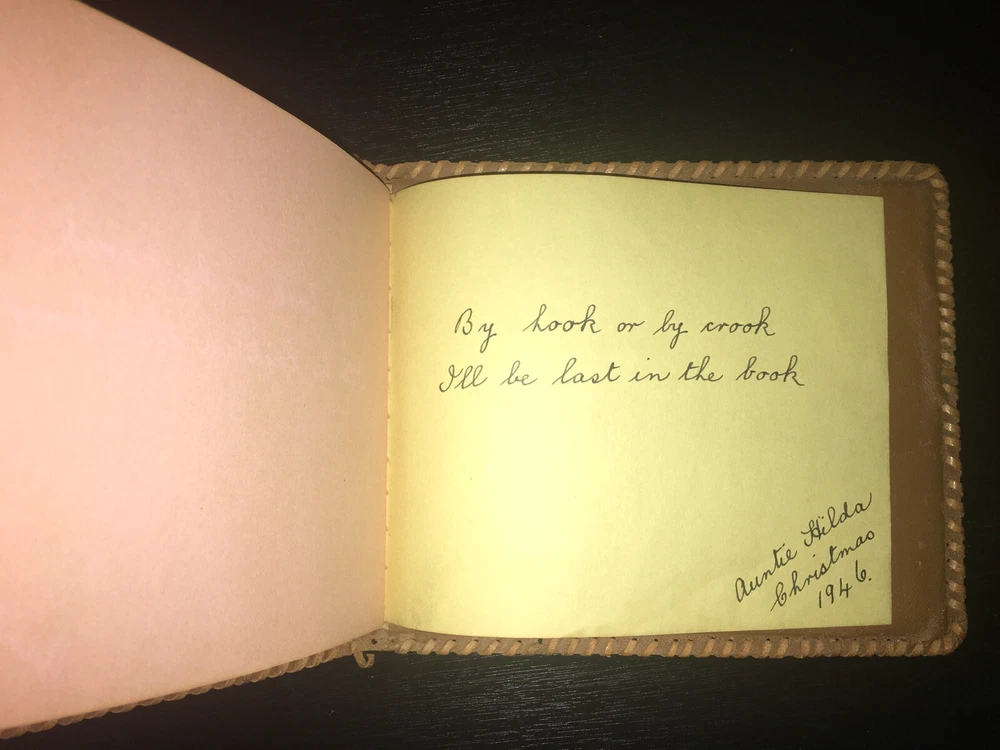 By hook or by crook
I'll be last in the book
Auntie Hilda
Christmas
1946.